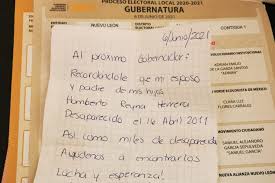 PROCESO ELECTORAL LOCAL 2020-2021
GUBERNATURA
6 DE JUNIO DE 2021
NUEVO LEÓN
DISTRITO
CONTIGUA 1
6/Junio/2021
Al próximo Gobernador:
Recordandole que mi esposo
y padre de mis hijos
Humberto Reyna Herrera
Desaparecido el 16 Abril 2011
Asi como miles de desaparecidos
Ayudenos a encontrarlos
Lucha y esperanza!
ADRIÁN EMILIO
DE LA GARZA SANTOS
"ADRIÁN"
CLARA LUZ
FLORES CARRALES
MOVIMIENTO CIUDADANO
SAMUEL ALEJANDRO
GARCÍA SEPÚLVEDA
"SAMUEL GARCÍA"
NUEVA ALIANZA NUEVO LEÓN